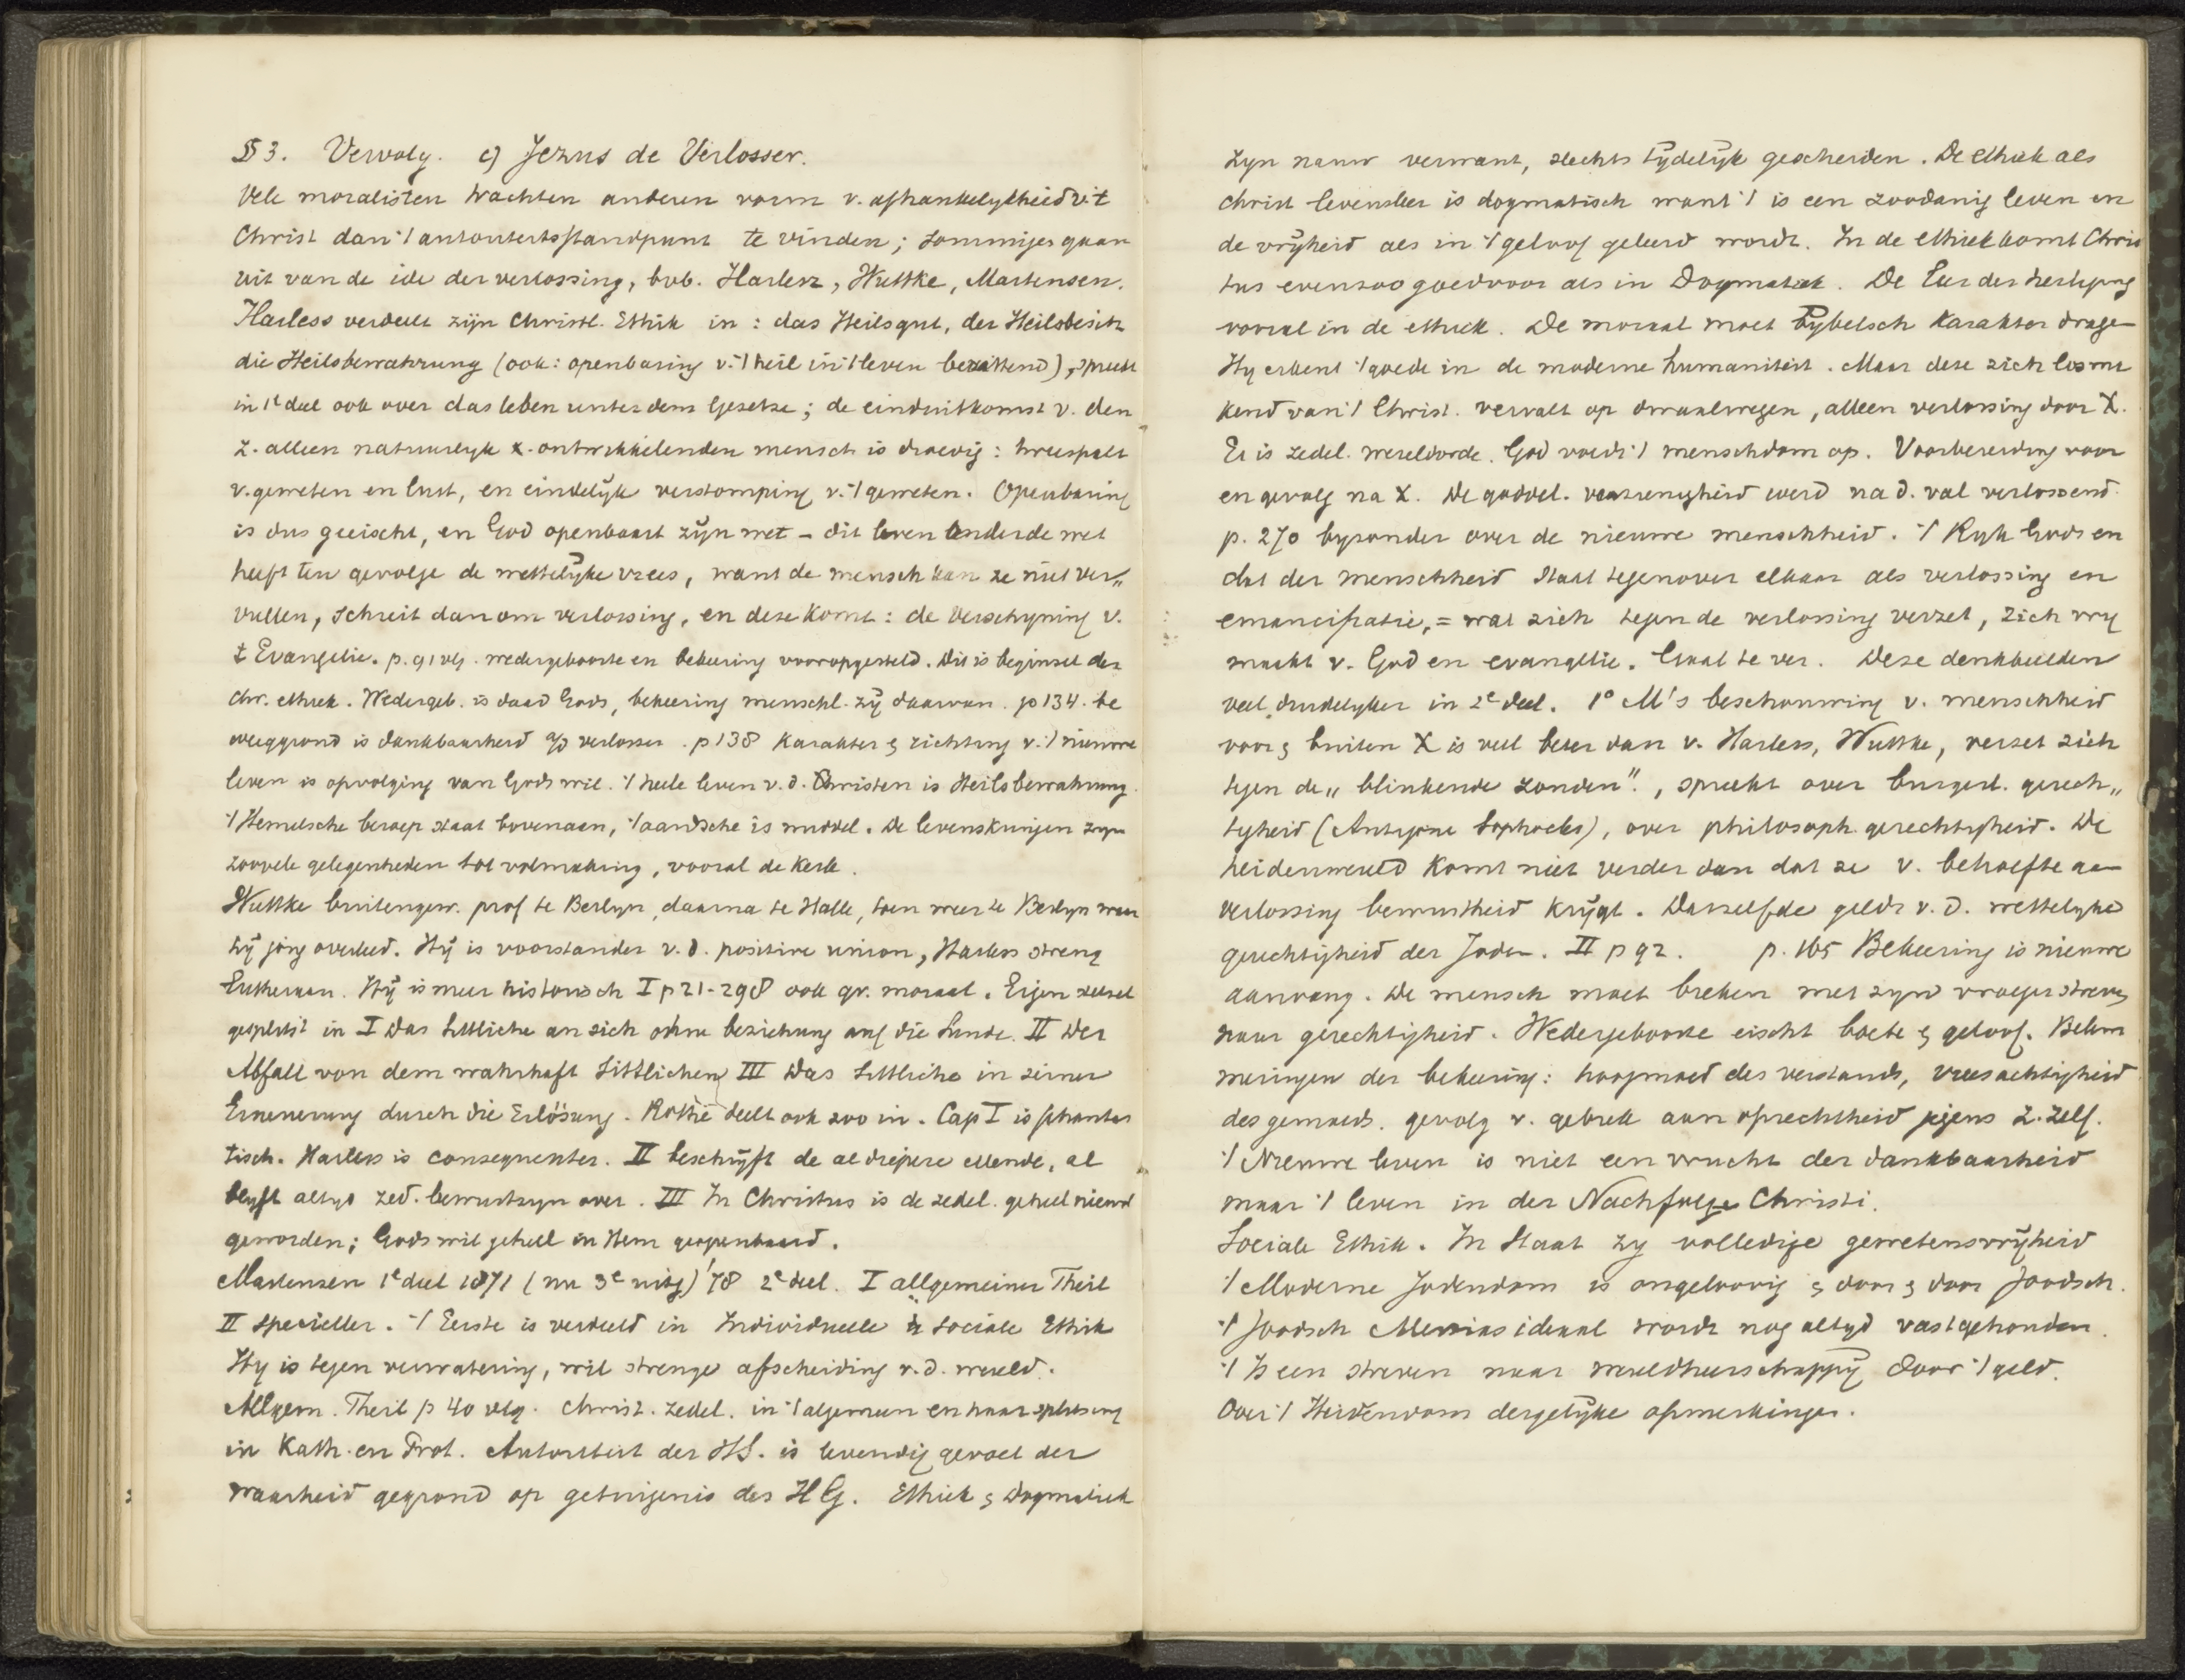 § 3. Vervolg. c) Jezus de Verlosser.
Vele moralisten trachten anderen vorm v. afhankelykheid v. 't
Christ dan 't autoriteitsstandpunt te vinden; sommiges gaan
uit van de idé der verlossing, bvb. Harless, Wuttke, Martensen.
Harless verdeelt zijn Christl. Ethik in: das Heilsgut, der Heilsbesitz
die Heilsbewahrung (ook: openbaring v. 't heil in 't leven bezittend), spreekt
in 1e deel ook over das leben unter dem Gesetze; de einduitkomst v. den
z. alleen natuurlyk x. ontwikkelenden mensch is droevig: tweespalt
v. geweten en lust, en eindelÿk verstomping v. 't geweten. Openbaring
is dus geeischt, en God openbaart zÿn wet – dit leven onder de wet
heeft ten gevolge de wettelÿke vrees, want de mensch kan ze niet ver„
vullen, schreit dan om verlossing, en deze komt: de verschyning v.
't Evangelie. p. 91 vlg. wedergeboorte en bekeering vooropgesteld. Dit is beginsel der
chr. ethiek. Wedergeb. is daad Gods, bekeering menschl. zÿ daarvan. p 134. be
weeggrond is dankbaarheid a/d verlosser. p 138 Karakter & richting v. 't nieuwe
leven is opvolging van Gods wil. 't heele leven v. d. Christen is Heilsbewahrung.
't Hemelsche beroep staat bovenaan, 't aardsche is middel. De levenskringen zyn
zoovele gelegenheden tot volmaking, vooral de Kerk.
Wuttke buitengew. prof te Berlyn, daarna te Halle, toen weer te Berlyn waar
hÿ jong overleed. Hÿ is voorstander v. d. positive union, Harless streng
Lutheraan. Hÿ is meer historisch I p 21-298 ook gr. moraal. Eigen stelsel
gesplitst in I Das Sittliche an sich ohne beziehung auf die Sünde. II Der
Abfall von dem wahrhaft Sittlichen III Das Sittliche in seiner
Erneuerung durch die Erlösung. Rothe deelt ook zoo in. Cap I is phantas
tisch. Harless is consequenter. II beschrÿft de al diepere ellende, al
blyft altyd zed. bewustzyn over. III In Christus is de zedel. geheel nieuw
geworden; Gods wil geheel in Hem geopenbaard.
Martensen 1e deel 1871 (nu 3e uitg) '78 2e deel. I allgemeiner Theil
II specieller. 't Eerste is verdeeld in Individueele & sociale Ethik
Hy is tegen verwatering, wil strenge afscheiding v. d. wereld.
Allgem. Theil p 40 vlg. Christ. zedel. in 't algemeen en haar splitsing
in Kath. en Prot. Autoriteit der HS. is levendig gevoel der
waarheid gegrond op getuigenis des HG. Ethiek & Dogmatiek
zyn nauw verwant, slechts tÿdelÿk gescheiden. De ethiek als
christ levensleer is dogmatisch want 't is een zoodanig leven en
de vrÿheid als in 't geloof geleerd wordt. In de ethiek komt Chris
tus evenzoo goed voor als in Dogmatiek. De Leer der heiliging
vooral in de ethiek. De moraal moet bÿbelsch karakter drage
Hy erkent 't goede in de moderne humaniteit. Maar deze zich losma
kend van 't Christ. vervalt op dwaalwegen, alleen verlossing door X.
Er is zedel. wereldorde. God voedt 't menschdom op. Voorbereiding voor
en gevolg na X. De goddel. voorzienigheid werd na d. val verlossend.
p. 270 byzonder over de nieuwe menschheid. 't Ryk Gods en
dat der menschheid staat tegenover elkaar als verlossing en
emancipatie, = wat zich tegen de verlossing verzet, zich vry
maakt v. God en evangelie. Gaat te ver. Deze denkbeelden
veel duidelyker in 2e deel. 1° M's beschouwing v. menschheid
voor & buiten X is veel beter dan v. Harless, Wuttke, verzet zich
tegen de „ blinkende zonden", spreekt over burgerl. gerech„
tigheid (Antigone Sophocles), over philosoph. gerechtigheid. De
heidenwereld komt niet verder dan dat ze v. behoefte aa
verlossing bewustheid krÿgt. Datzelfde geldt v. d. wettelyke
gerechtigheid der Joden. II p 92. p. 165 Bekeering is nieuwe
aanvang. De mensch moet breken met zyn vroeger streve
naar gerechtigheid. Wedergeboorte eischt boete & geloof. Belem
meringen der bekeering: hoogmoed des verstands, vreesachtigheid
des gemoeds. gevolg v. gebrek aan oprechtheid jegens z. zelf.
't Nieuwe leven is niet een vrucht der dankbaarheid
maar 't leven in der Nachfolge Christi.
Sociale Ethik. In Staat zy volledige gewetensvrÿheid
't Moderne Jodendom is ongeloovig & door & door Joodsch.
't Joodsch Messias ideaal wordt nog altyd vastgehouden.
't Is een streven naar wereldheerschappÿ door 't geld.
Over 't Heidendom dergelÿke opmerkingen.